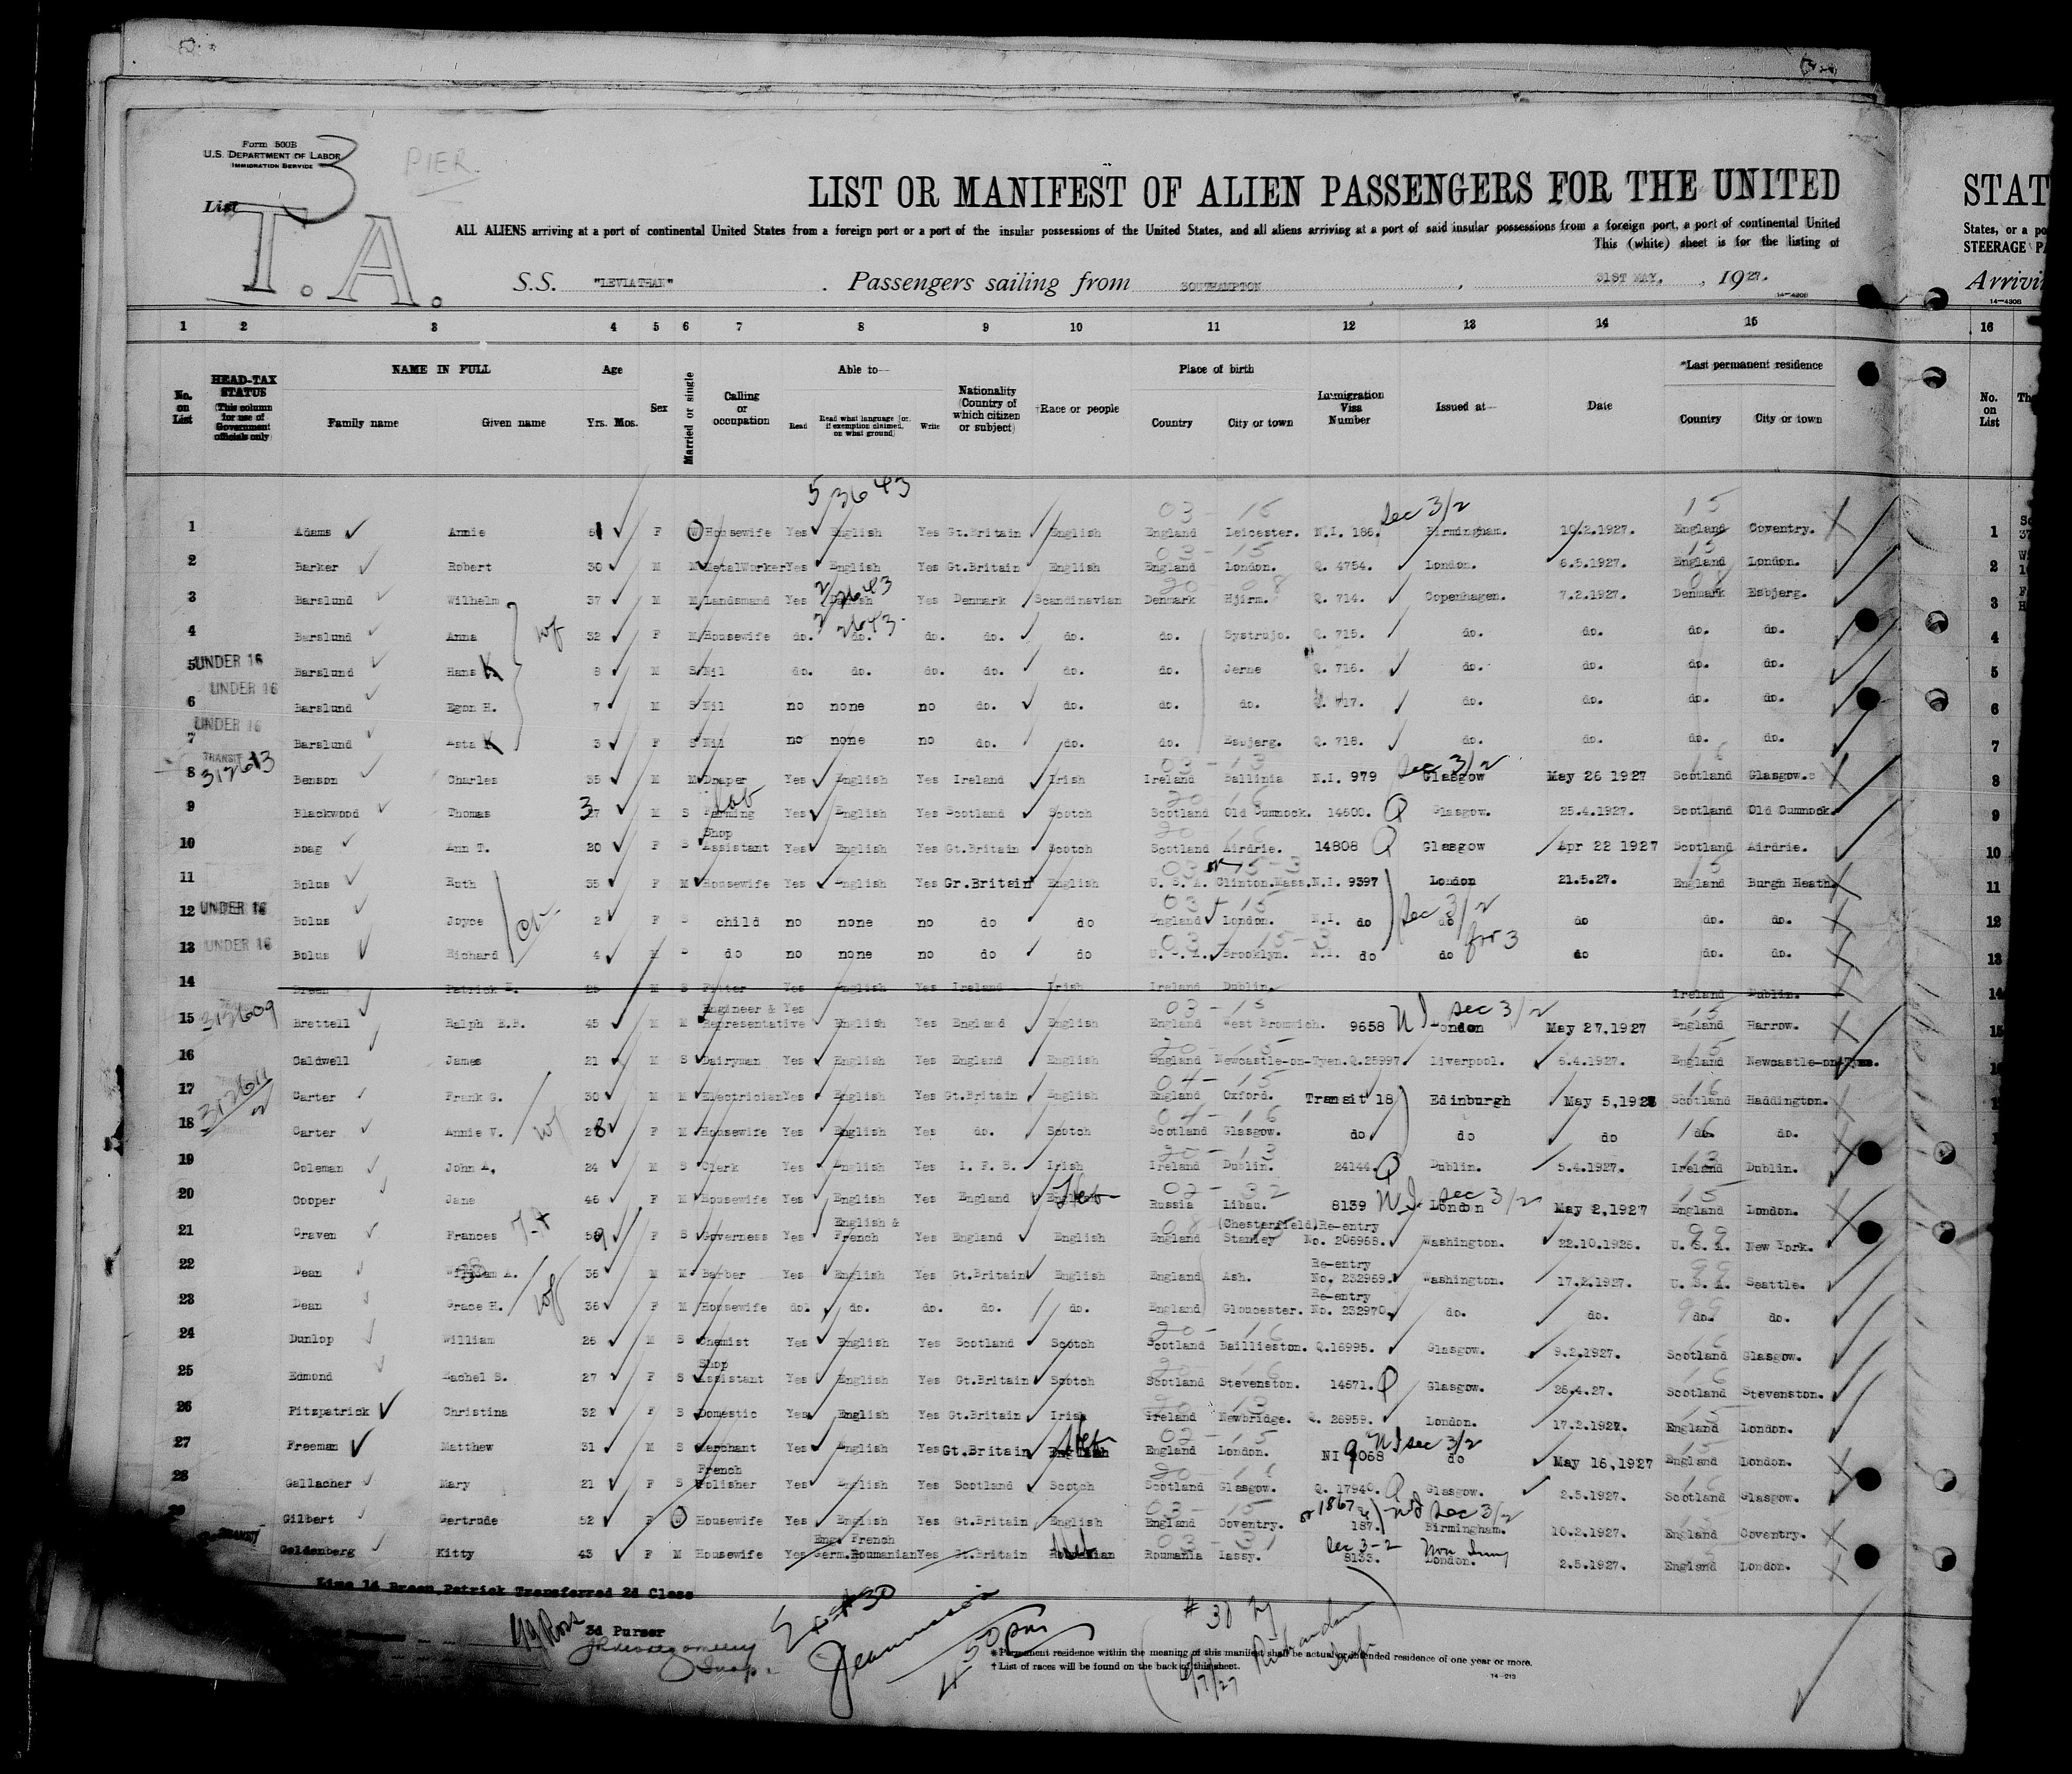 Form 500B
U.S. DEPARTMENT OF LABOR
IMMIGRATION SERVICE
3
PIER.
List
T.A.
LIST OR MANIFEST OF ALIEN PASSENGERS FOR THE UNITED
STAT
ALL ALIENS arriving at a port of continental United States from a foreign port or a port of the insular possessions of the United States, and all aliens arriving at a port of said insular possessions from a foreign port, a port of continental United
States, or a po
This (white) sheet is for the listing of
STEERAGE PA
S.S. "LEVIATHAN" . Passengers sailing from SOUTHAMPTON , 31ST MAY, , 1927.
Arrivi
14-4308
14-4308
1 2 3 4 5 6 7 8 9 10 11 12 13 14 15 16
No. on List
HEAD-TAX STATUS (This column for use of Government officials only)
NAME IN FULL Family name Given name
Age Yrs. Mos.
Sex
Married or single
Calling or occupation
Able to— Read Read what language (or, if exemption claimed, on what ground) Write
Nationality (Country of which citizen or subject)
†Race or people
Place of birth Country City or town
Immigration Visa Number
Issued at—
Date
*Last permanent residence Country City or town
No. on List
5 3643
1 Adams Annie 51 F W Housewife Yes English Yes Gt.Britain English England Leicester. N.I. 186. Sec 3/2 Birmingham. 10.2.1927. England Coventry. 1
2 Barker Robert 30 M M MetalWorker Yes English Yes Gt.Britain English England London. Q. 4754. London. 6.5.1927. England London. 2
3 Barslund Wilhelm 37 M M Landsmand Yes Danish Yes Denmark Scandinavian Denmark Hjirm. Q. 714. Copenhagen. 7.2.1927. Denmark Esbjerg. 3
4 Barslund Anna wf 32 F M Housewife do. do. do. do. do. do. Systrujo. Q. 715. do. do. do. do. 4
5 UNDER 16 Barslund Hans 8 M S Nil do. do. do. do. do. do. Jerne Q. 716. do. do. do. do. 5
UNDER 16
6 Barslund Egon H. 7 M S Nil no none no do. do. do. do. Q. 717. do. do. do. do. 6
UNDER 16
7 Barslund Asta 3 F S Nil no none no do. do. do. Esbjerg. Q. 718. do. do. do. do. 7
TRANSIT
8 312613 Benson Charles 35 M M Draper Yes English Yes Ireland Irish Ireland Ballinia N.I. 979 Sec 3/2 Glasgow May 26 1927 Scotland Glasgow. 8
9 Blackwood Thomas 37 M S Farming lab Yes English Yes Scotland Scotch Scotland Old Cumnock. 14600. Q Glasgow. 25.4.1927. Scotland Old Cumnock. 9
10 Boag Ann T. 20 F S Shop Assistant Yes English Yes Gt.Britain Scotch Scotland Airdrie. 14808 Q Glasgow Apr 22 1927 Scotland Airdrie. 10
11 Bolus Ruth 35 F M Housewife Yes English Yes Gr.Britain English U. S. A. Clinton.Mass. N.I. 9397 London 21.5.27. England Burgh Heath. 11
12 UNDER 16 Bolus Joyce ch 2 F S child no none no do do England London. N.I. do Sec 3/2 do do do. do. 12
13 UNDER 16 Bolus Richard 4 M S do no none no do do U. S. A. Brooklyn. N.I. do do for 3 do do. do. 13
14 Breen Patrick 25 M S Fitter Yes English Yes Ireland Irish Ireland Dublin. Ireland Dublin. 14
15 312609 Brettell Ralph E.B. 45 M M Engineer & Representative Yes English Yes England English England West Bromwich. 9658 NI Sec 3/2 London May 27,1927 England Harrow. 15
16 Caldwell James 21 M S Dairyman Yes English Yes England English England Newcastle-on-Tyen. Q.25997 Liverpool. 6.4.1927. England Newcastle-on-Tyne.
17 312611 Carter Frank G. 30 M M Electrician Yes English Yes Gt.Britain English England Oxford. Transit 18 Edinburgh May 5,1927 Scotland Haddington.
18 Carter Annie V. wf 28 F M Housewife Yes English Yes do. Scotch Scotland Glasgow. do do do do. do.
19 Coleman John A. 24 M S Clerk Yes English Yes I. F. S. Irish Ireland Dublin. 24144. Q Dublin. 5.4.1927. Ireland Dublin.
20 Cooper Jane 46 F M Housewife Yes English Yes England English Heb Russia Libau. 8139 NI. Sec 3/2 London May 2,1927 England London.
21 Craven Frances 59 F S Governess Yes English & French Yes England English England (Chesterfield) Stanley Re-entry No. 206958. Washington. 22.10.1926. U. S. A. New York.
22 Dean William A. 36 M M Barber Yes English Yes Gt.Britain English England Ash. Re-entry No. 232969. Washington. 17.2.1927. U. S. A. Seattle.
23 Dean Grace H. wf 36 F M Housewife do. do. do. do. do. England Gloucester. Re-entry No. 232970. do. do. do. do.
24 Dunlop William 26 M S Chemist Yes English Yes Scotland Scotch Scotland Baillieston. Q.16995. Glasgow. 9.2.1927. Scotland Glasgow.
25 Edmond Rachel S. 27 F S Shop Assistant Yes English Yes Gt.Britain Scotch Scotland Stevenston. 14571. Q Glasgow. 26.4.27. Scotland Stevenston.
26 Fitzpatrick Christina 32 F S Domestic Yes English Yes Gt.Britain Irish Ireland Newbridge. Q. 26959. London. 17.2.1927. England London.
27 Freeman Matthew 31 M S Merchant Yes English Yes Gt.Britain English Heb England London. NI 9068 NI Sec 3/2 do May 16,1927 England London.
28 Gallacher Mary 21 F S French Polisher Yes English Yes Scotland Scotch Scotland Glasgow. Q. 17940. Q Glasgow. 2.5.1927. Scotland Glasgow.
29 Gilbert Gertrude 52 F W Housewife Yes English Yes Gt.Britain English England Coventry. 187. NI Sec 3/2 Birmingham. 10.2.1927. England Coventry.
TRANSIT Goldenberg Kitty 43 F M Housewife Yes Eng. French Germ.Roumanian Yes Gt.Britain Roumanian Heb Roumania Iassy. Sec 3-2 8133. Non Imm London. 2.5.1927. England London.
Line 14 Breen,Patrick Transferred 2d Class
3d Purser
Insp.
Ex #30
4 50 pm
# 30 by
6/7/27
Insp
* Permanent residence within the meaning of this manifest shall be actual or intended residence of one year or more.
† List of races will be found on the back of this sheet.
14-213